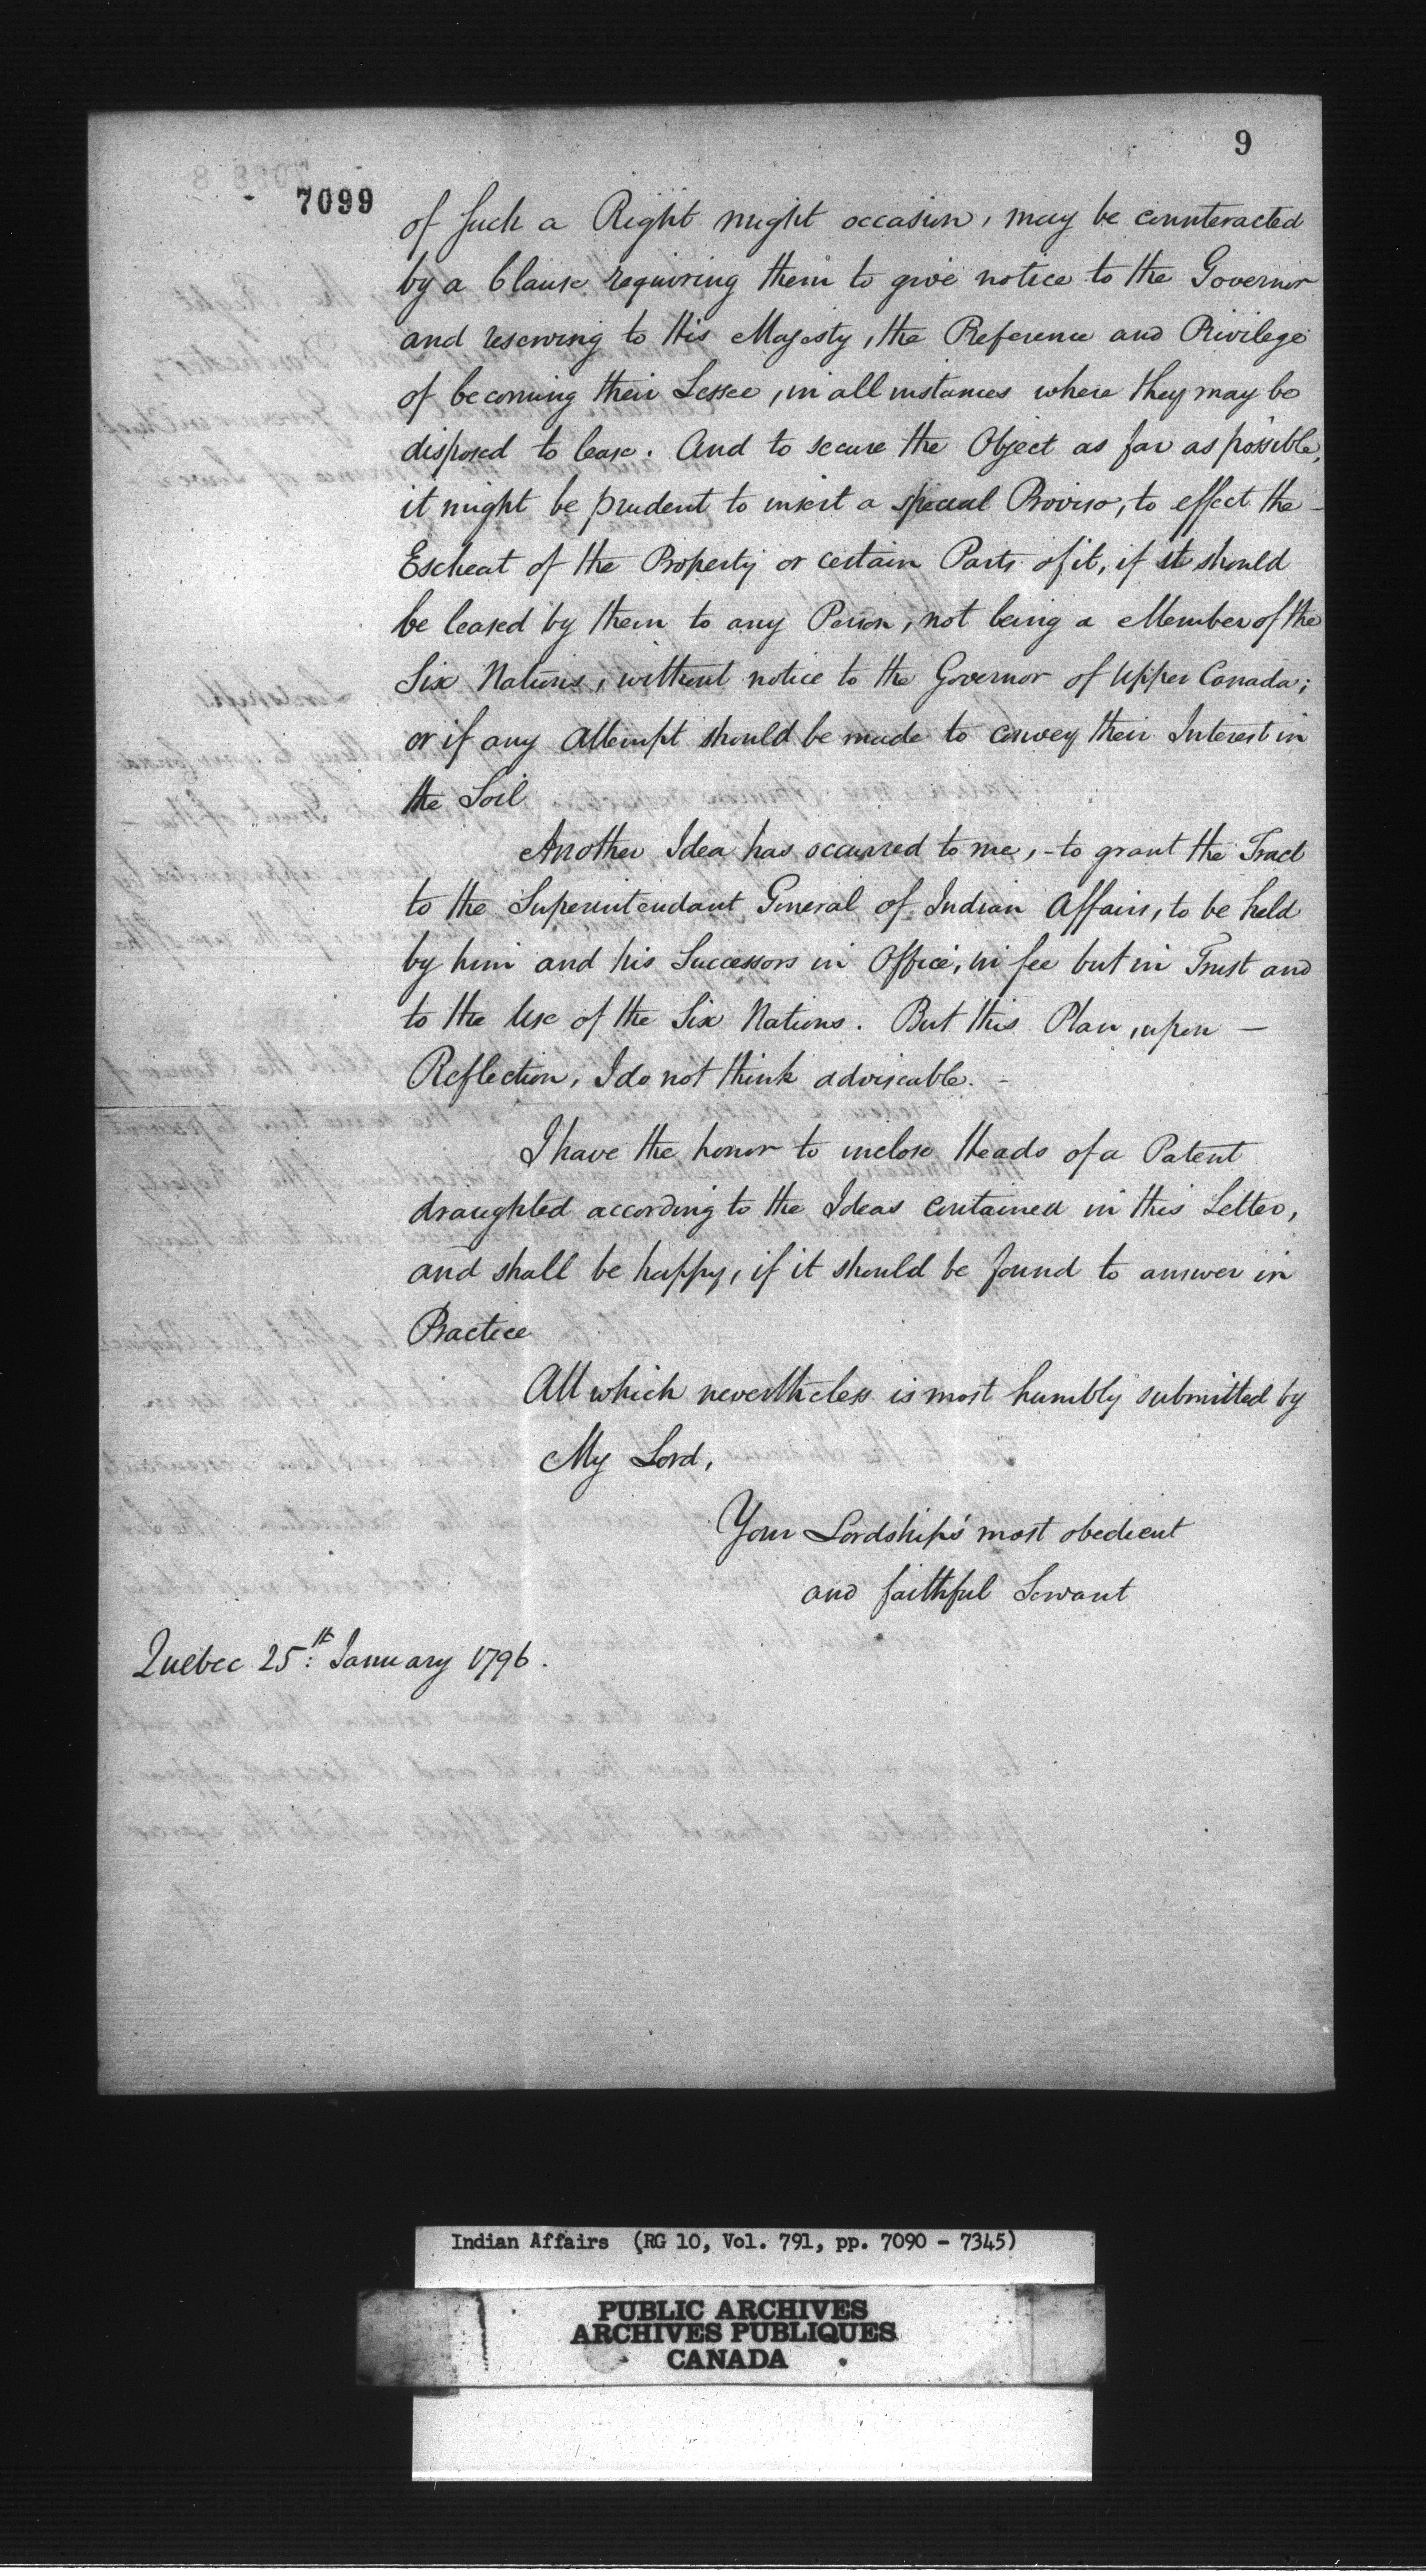 9
7099
of such a Right might occasion, may be counteracted
by a Clause requiring them to give notice to the Governor
and reserving to His Majesty, the Preference and Privilege
of becoming their Lessee, in all instances where they may be
disposed to lease. And to secure the Object as far as possible,
it might be prudent to insert a special Proviso, to effect the –
Escheat of the Property or certain Parts of it, if it should
be leased by them to any Person, not being a Member of the
Six Nations, without notice to the Governor of Upper Canada;
or if any Attempt should be made to convey their Interest in
the Soil
Another Idea has occurred to me, – to grant the Tract
to the Superintendant General of Indian Affairs, to be held
by him and his Successors in Office, in fee but in Trust and
to the Use of the Six Nations. But this Plan, upon –
Reflection, I do not think adviseable. –
I have the honor to inclose Heads of a Patent
draughted according to the Ideas contained in this Letter,
and shall be happy, if it should be found to answer in
Practice
All which nevertheless is most humbly submitted by
My Lord,
Your Lordship's most obedient
and faithful Servant
Quebec 25th: January 1796.
Indian Affairs (RG 10, Vol. 791, pp. 7090 - 7345)
PUBLIC ARCHIVES
ARCHIVES PUBLIQUES
CANADA